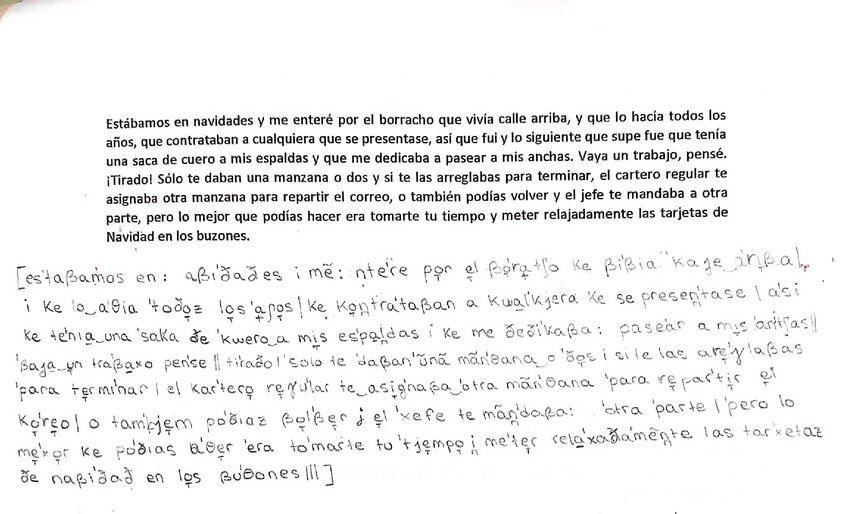 Estábamos en navidades y me enteré por el borracho que vivía calle arriba, y que lo hacía todos los
años, que contrataban a cualquiera que se presentase, así que fui y lo siguiente que supe fue que tenía
una saca de cuero a mis espaldas y que me dedicaba a pasear a mis anchas. Vaya un trabajo, pensé.
¡Tirado! Sólo te daban una manzana o dos y si te las arreglabas para terminar, el cartero regular te
asignaba otra manzana para repartir el correo, o también podías volver y el jefe te mandaba a otra
parte, pero lo mejor que podías hacer era tomarte tu tiempo y meter relajadamente las tarjetas de
Navidad en los buzones.
[es'taβamos en: aβi'ðaðes i mẽ: nte'ɾe poɾ el βo'ratʃo ke βi'βia 'kaʝe a'riβa|
i ke lo‿a'θia 'toðoz los 'aɲos| ke kontɾa'taβan a kwal'kjeɾa ke se pɾesen'tase | a'si
ke te'nia‿una 'saka ðe 'kweɾo‿a mis es'paldas i ke me ðeði'kaβa: pase'aɾ a mis 'antʃas||
'baʝa‿un tɾa'βaxo pen'se || ti'ɾaðo| 'solo te 'ðaβan 'ũnã mãn'θana‿o 'ðos i si le las are'ɣlaβas
'paɾa teɾmi'naɾ | el kaɾ'teɾo reɣu'laɾ te‿asiɣ'naβa‿'otɾa mãn'θana 'paɾa repaɾ'tiɾ el
ko'reo| o tam'bjem po'ðiaz βol'βeɾ j el 'xefe te mãn'daβa: 'otɾa 'paɾte | 'peɾo lo
me'xoɾ ke po'ðias a'θeɾ 'eɾa to'maɾte tu 'tjempo i me'teɾ rela'xaðamẽnte las taɾ'xetaz
ðe naβi'ðað en los βu'θones|||]